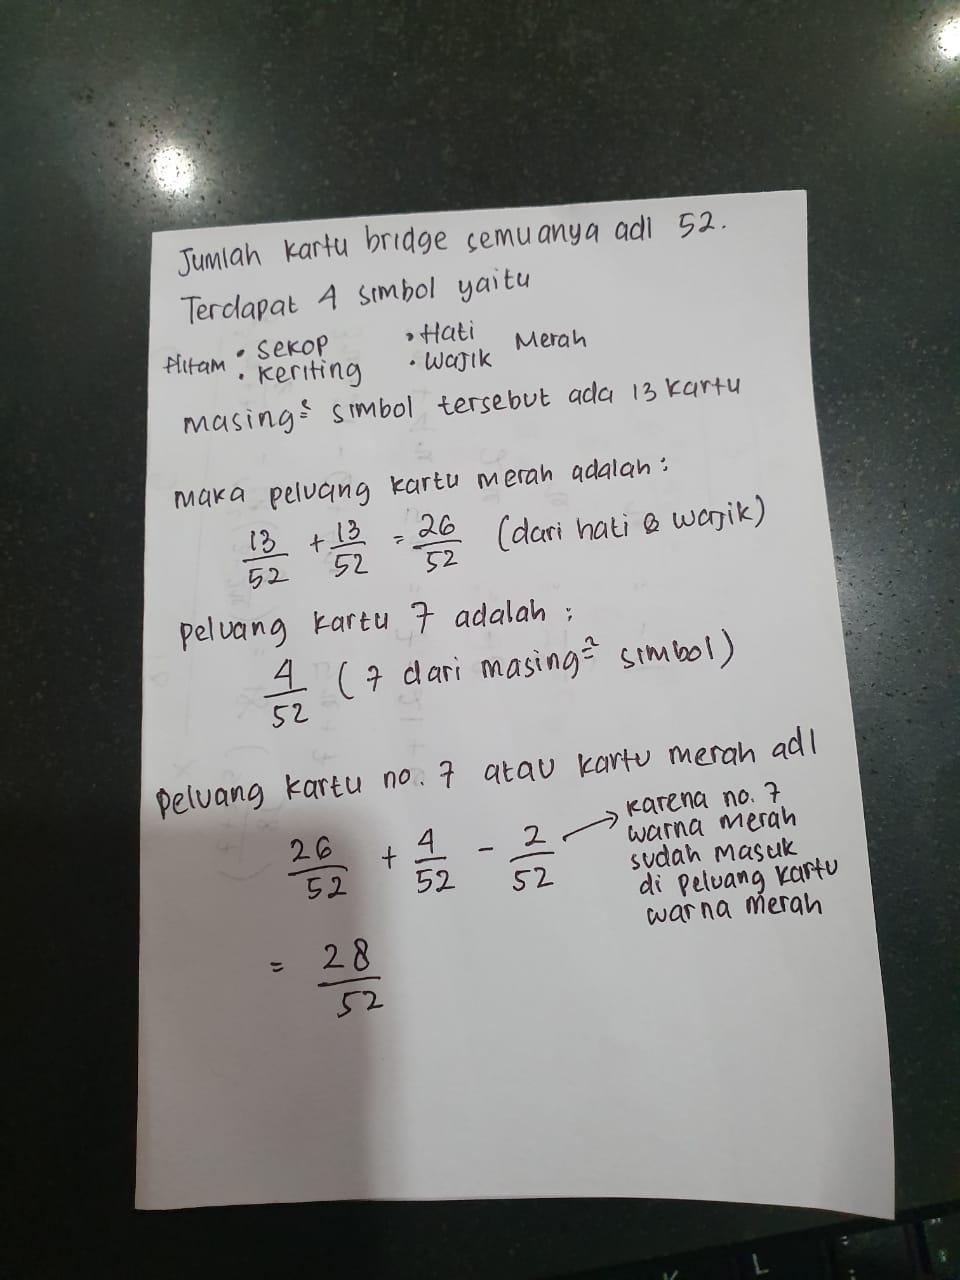 Jumlah kartu bridge semuanya adl 52.
Terdapat 4 simbol yaitu
Hitam • Sekop • Hati Merah
• Keriting • Wajik
masing² simbol tersebut ada 13 kartu
maka peluang kartu merah adalah :
13/52 + 13/52 = 26/52 (dari hati & wajik)
peluang kartu 7 adalah :
4/52 (7 dari masing² simbol)
peluang kartu no. 7 atau kartu merah adl
26/52 + 4/52 - 2/52 → karena no. 7
warna merah
sudah masuk
di peluang kartu
warna merah
= 28/52
L